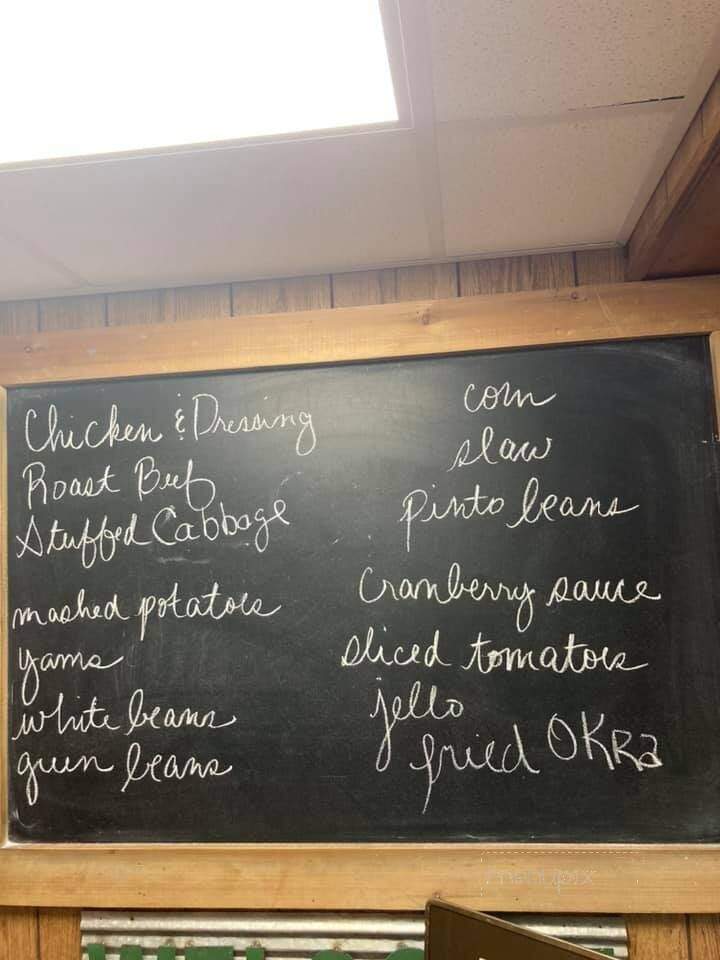 Chicken & Dressing
Roast Beef
Stuffed Cabbage
mashed potatoes
yams
white beans
green beans
corn
slaw
pinto beans
cranberry sauce
sliced tomatoes
jello
fried OKRa